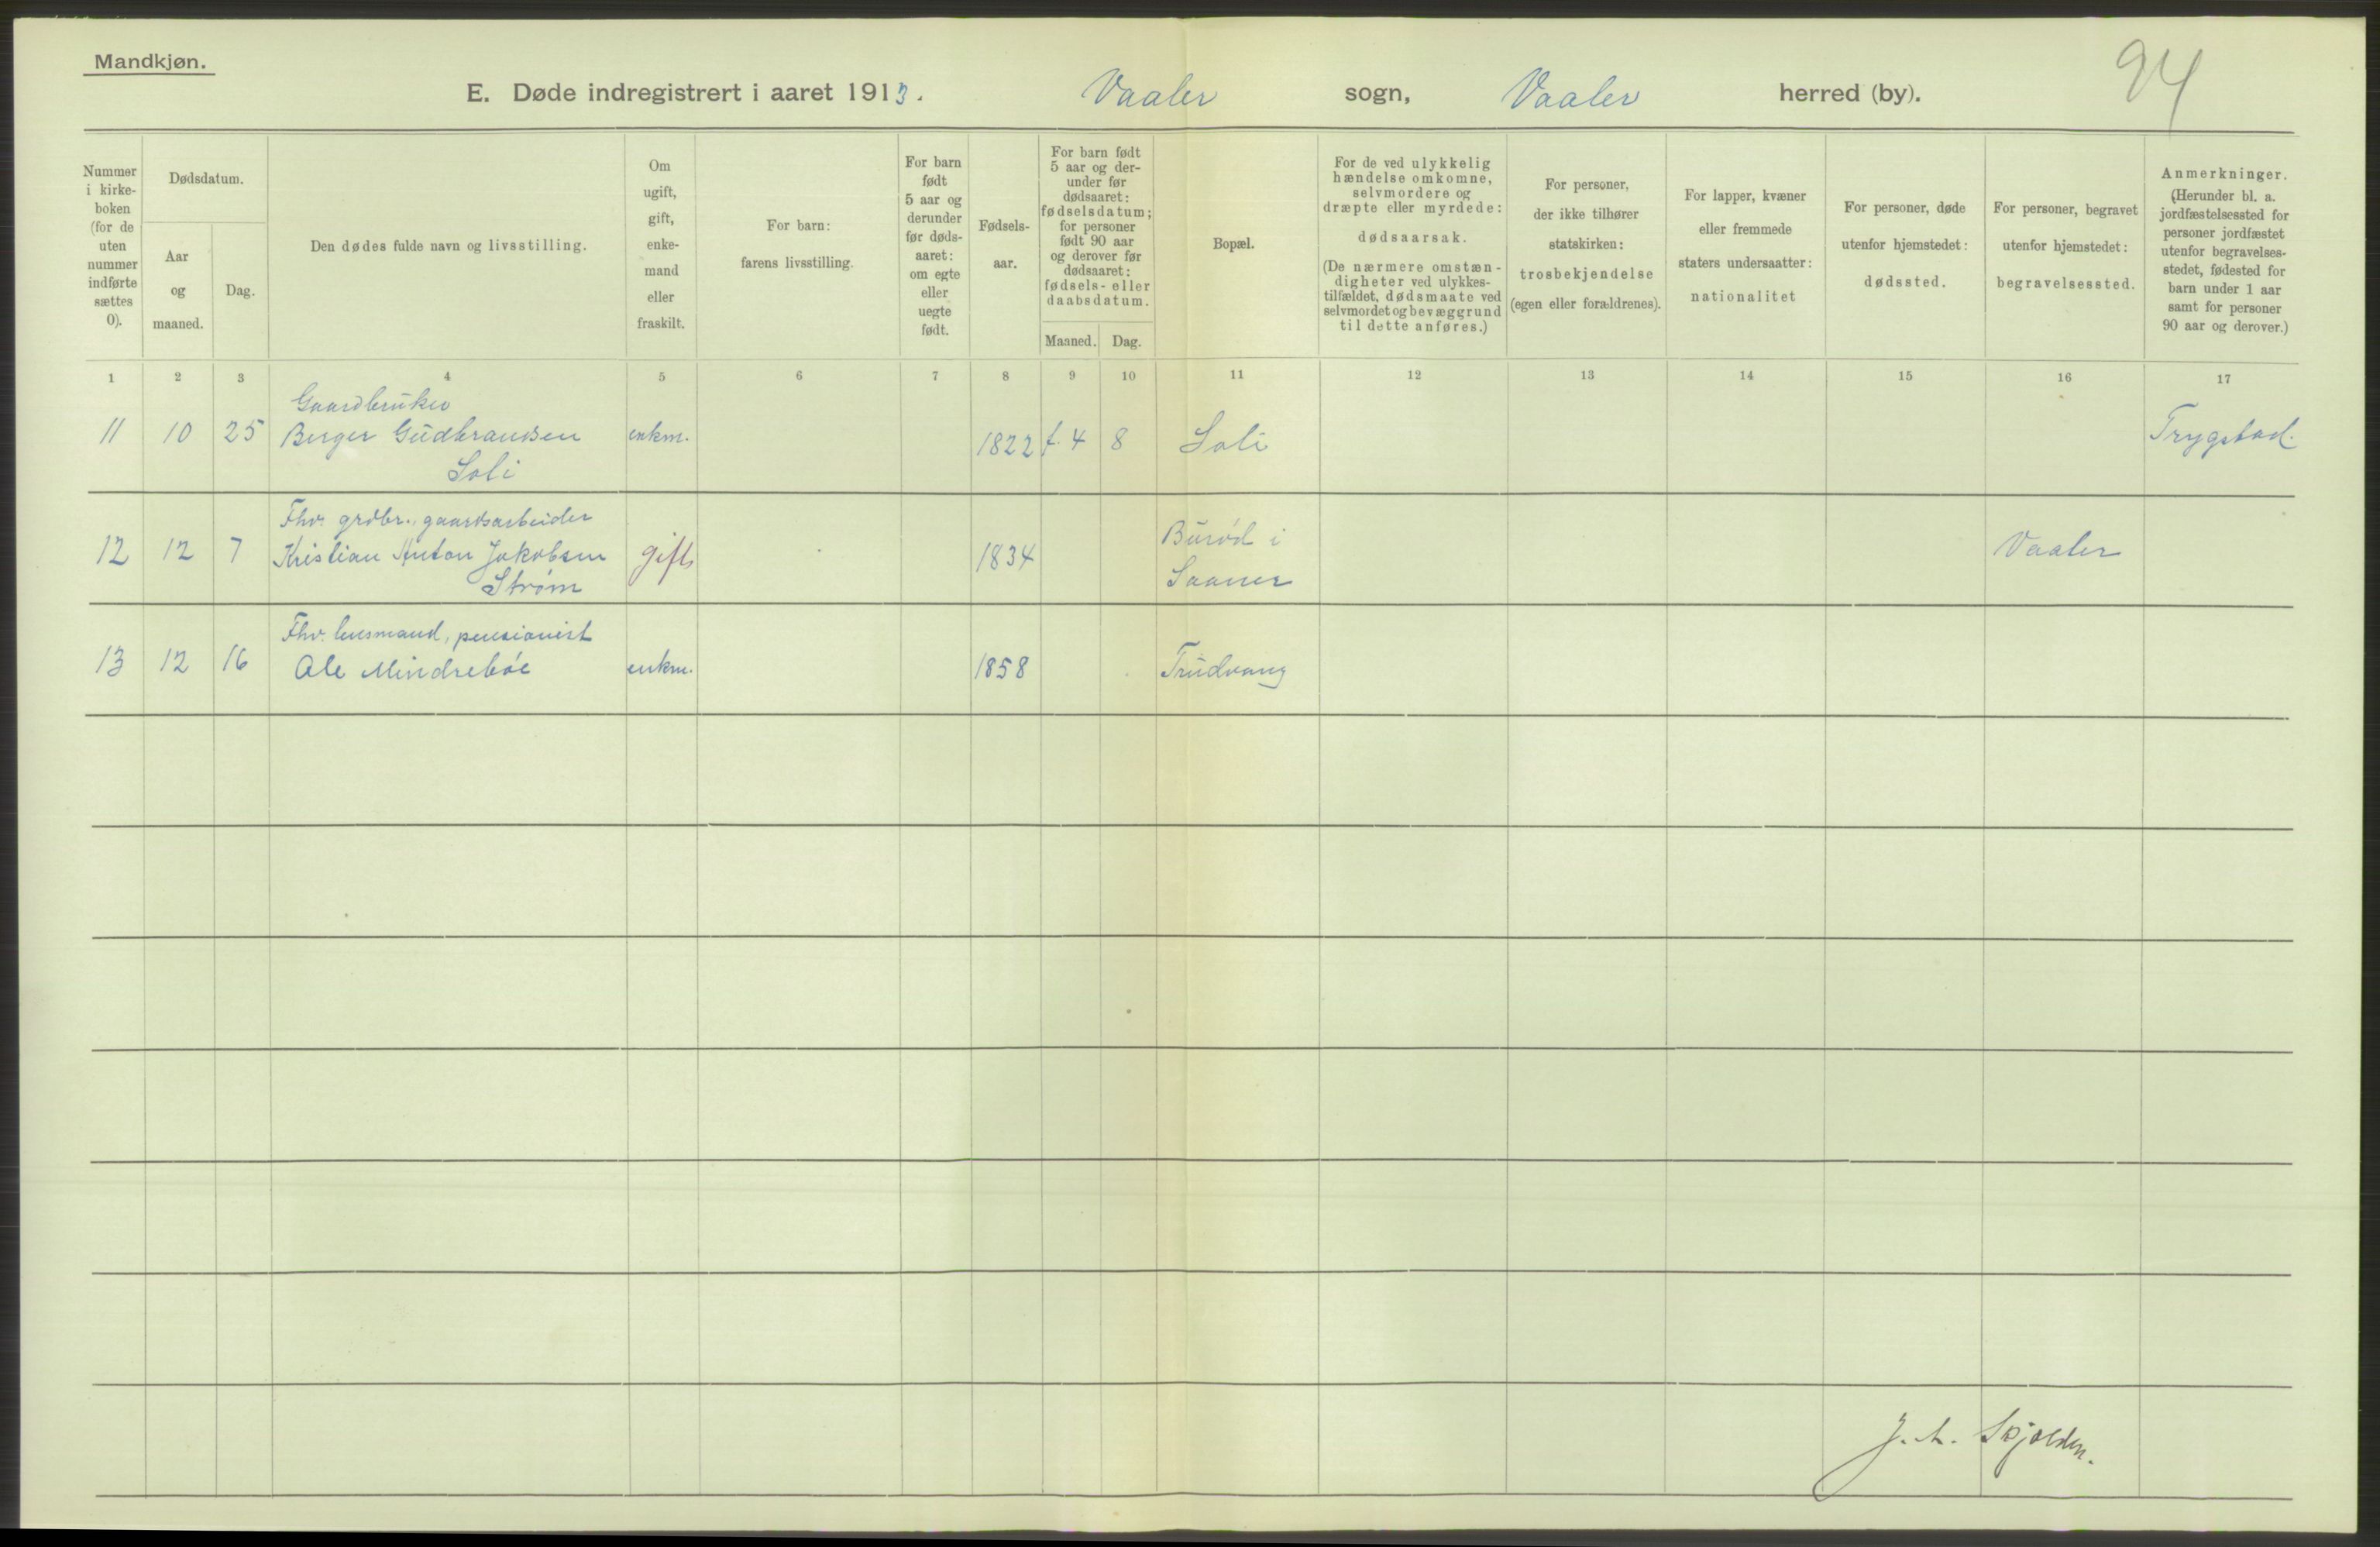 Mandkjøn.
E. Døde indregistrert i aaret 1913. Vaaler sogn, Vaaler herred (by).
94
Nummer i kirke-boken (for de uten nummer indførte sættes 0).
Dødsdatum.
Aar og maaned.
Dag.
Den dødes fulde navn og livsstilling.
Om ugift, gift, enke-mand eller fraskilt.
For barn: farens livsstilling.
For barn født 5 aar og derunder før døds-aaret: om egte eller uegte født.
Fødsels-aar.
For barn født 5 aar og der-under før dødsaaret: fødselsdatum; for personer født 90 aar og derover før dødsaaret: fødsels- eller daabsdatum.
Maaned. Dag.
Bopæl.
For de ved ulykkelig hændelse omkomne, selvmordere og dræpte eller myrdede: dødsaarsak. (De nærmere omstæn-digheter ved ulykkes-tilfældet, dødsmaate ved selvmordet og bevæggrund til dette anføres.)
For personer, der ikke tilhører statskirken: trosbekjendelse (egen eller forældrenes).
For lapper, kvæner eller fremmede staters undersaatter: nationalitet
For personer, døde utenfor hjemstedet: dødssted.
For personer, begravet utenfor hjemstedet: begravelsessted.
Anmerkninger. (Herunder bl. a. jordfæstelsessted for personer jordfæstet utenfor begravelses-stedet, fødested for barn under 1 aar samt for personer 90 aar og derover.)
1 2 3 4 5 6 7 8 9 10 11 12 13 14 15 16 17
Gaardbruker
11 10 25 Berger Gudbrandsen enkm. 1822 f. 4 8 Soli Trygstad.
Soli
Fhv. grdbr., gaardsarbeider
12 12 7 Kristian Anton Jakobsen gift 1834 Burød i Vaaler
Strøm Saaner
Fhv. lensmand, pensionist
13 12 16 Ole Mindrebøe enkm. 1858 Trudvang
J. A. Skjolden.